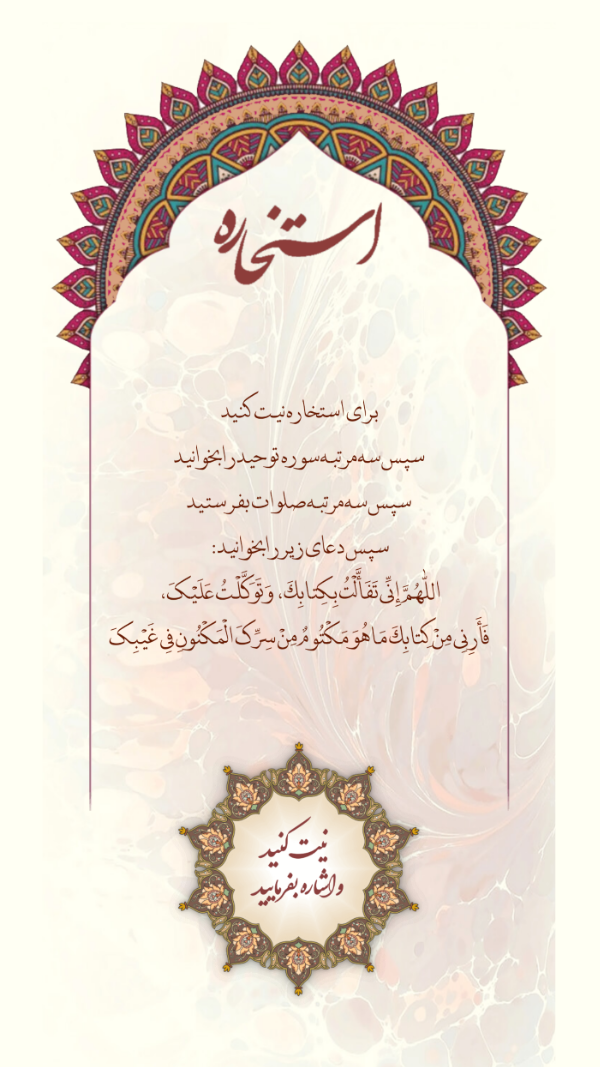 استخاره
برای استخاره نیت کنید
سپس سه مرتبه سوره توحید را بخوانید
سپس سه مرتبه صلوات بفرستید
سپس دعای زیر را بخوانید:
اللّٰهُمَّ إِنِّی تَفَأَّلْتُ بِکِتابِكَ، وَتَوَکَّلْتُ عَلَیْکَ،
فَأَرِنِی مِنْ کِتابِكَ مَا هُوَ مَکْتُومٌ مِنْ سِرِّکَ الْمَکْنُونِ فِی غَیْبِکَ
نیت کنید
و اشاره بفرمایید